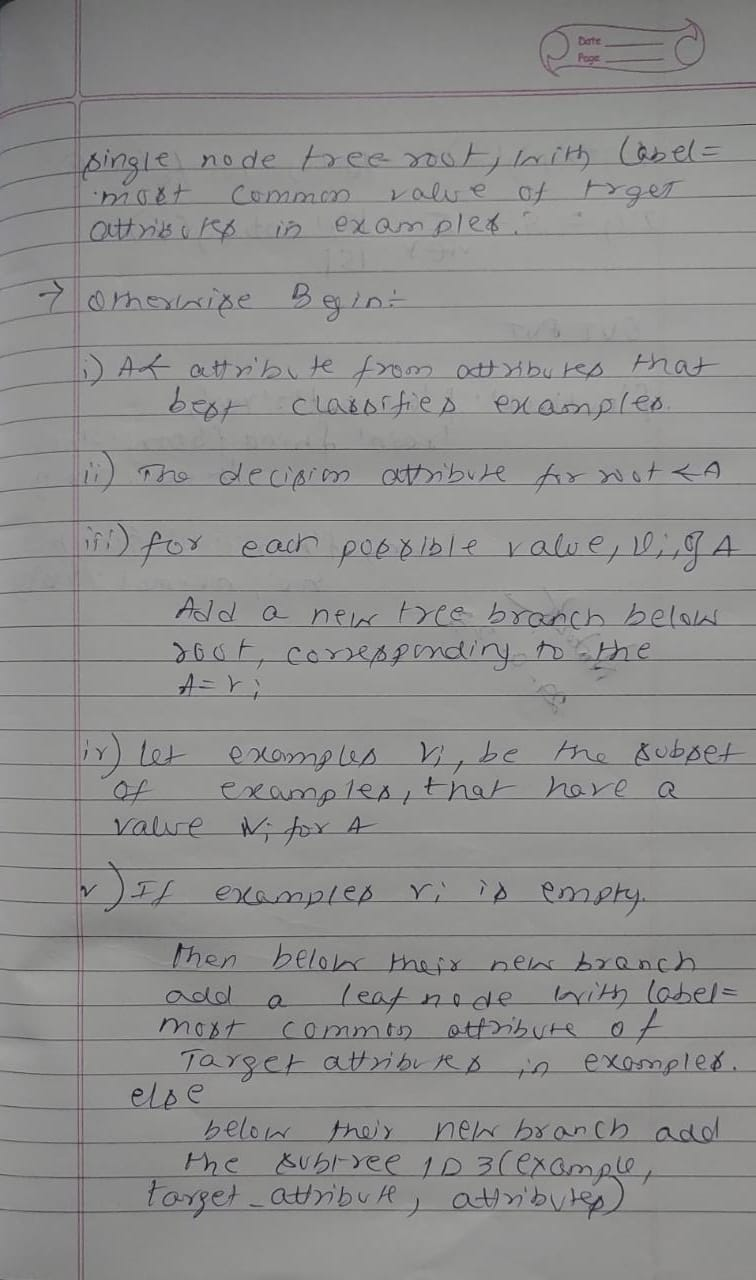 Date
Page
single node tree root, with label=
most common value of trget
attributes in examples.
→ Otherwise Begin:-
i) A← attribute from attributes that
best classifies examples.
ii) The decision attribute for root ← A
iii) for each possible value, Vi, of A
Add a new tree branch below
root, corresponding to the
A = vi
iv) let examples Vi, be the subset
of examples, that have a
value Vi for A
v) If examples vi is empty.
Then below their new branch
add a leaf node with label=
most common attribute of
Target attributes in examples.
else
below their new branch add
the subtree ID3(example,
target_attribute, attributes)